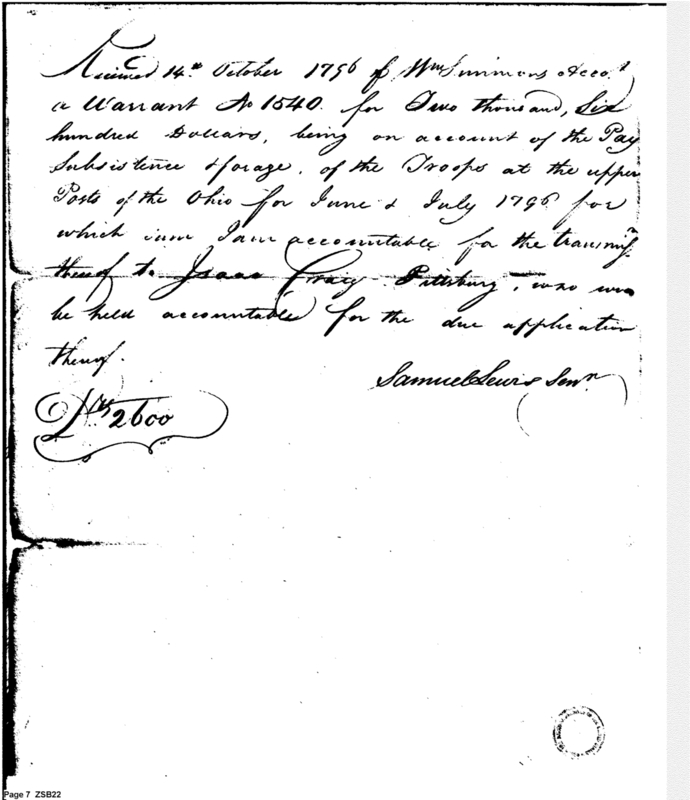 Received 14th October 1796 of Wm Simmons Accot
a Warrant No 1540. for Two thousand, Six
hundred Dollars, being on account of the Pay
Subsistence & forage, of the Troops at the upper
Posts of the Ohio for June & July 1796 for
which I am accountable for the transmisn
thereof to Isaac Craig Pittsburg, who will
be held accountable for the due application
thereof.
Samuel Lewis Senr
Drs 2600
Page 7 ZSB22